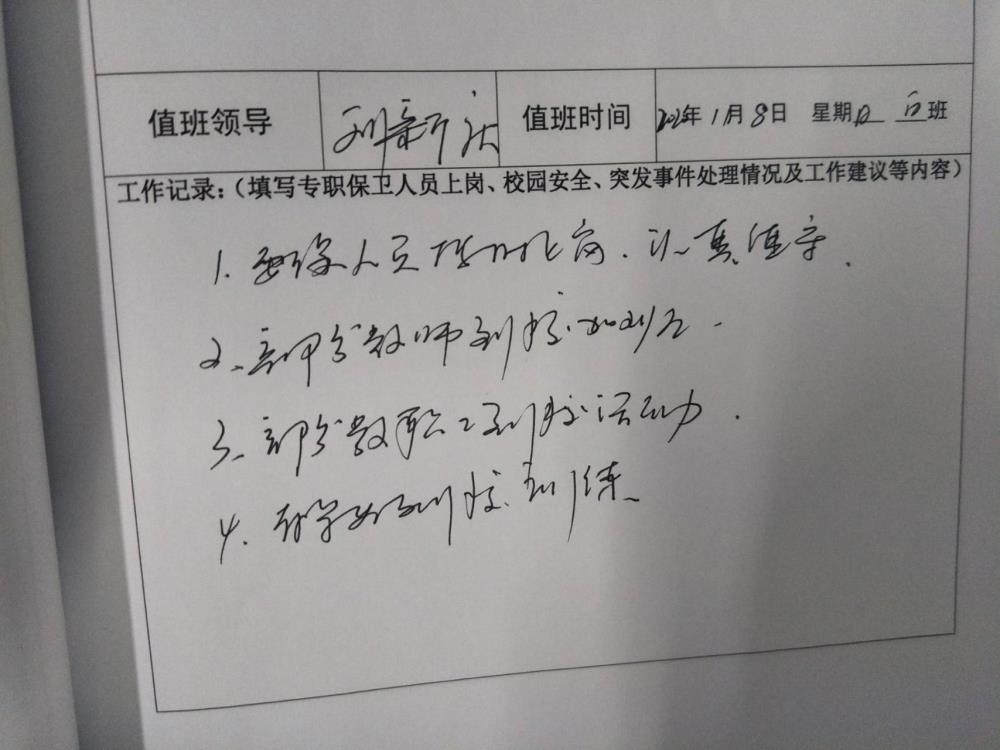 值班领导 刘新庆 值班时间 年1月8日 星期日 白班
工作记录:(填写专职保卫人员上岗、校园安全、突发事件处理情况及工作建议等内容)
1. 安保人员按时上岗.认真值守.
2、部分教师到校加班.
3、部分教职工到校活动.
4.有学生到校训练